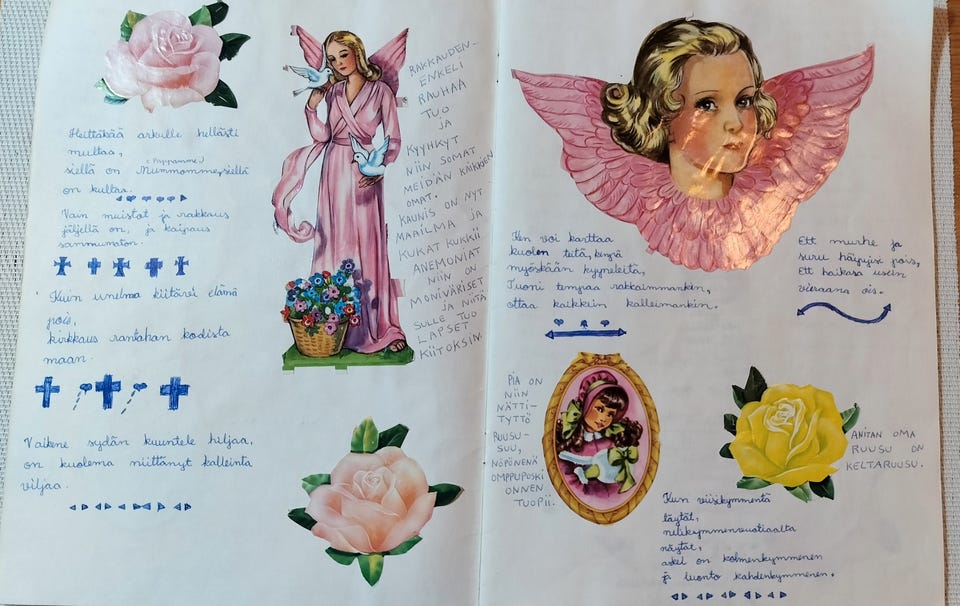 Heittäkää arkulle hellästi
multaa,
(Pappamme)
siellä on Mummomme, siellä
on kultaa.
Vain muistot ja rakkaus
jäljellä on, ja kaipaus
sammumaton.
Kuin unelma kiitävi elämä
pois,
kirkkaus rantahan kodista
maan.
Vaikene sydän kuuntele hiljaa,
on kuolema niittänyt kalleinta
viljaa.
RAKKAUDEN-
ENKELI
RAUHAA
TUO
JA
KYYHKYT
NIIN SOMAT
MEIDÄN KAIKKIEN
OMAT.
KAUNIS ON NYT
MAAILMA JA
KUKAT KUKKII
ANEMONIAT
NIIN ON
MONIVÄRISET
JA NIITÄ
SULLE TUO
LAPSET
KIITOKSIN.
Ken voi karttaa
kuolon teitä, kenpä
myöskään kyyneleitä,
Tuoni tempaa rakkaimmankin,
ottaa kaikkein kalleimankin.
Ett murhe ja
suru häipyix pois,
Ett haikeus usein
vieraana ois.
PIA ON
NIIN
NÄTTI-
TYTTÖ
RUUSU-
SUU,
NÖPÖNENÄ
OMPPUPOSKI
ONNEN
TUOPII.
ANITAN OMA
RUUSU ON
KELTARUUSU.
Kun viisikymmentä
täytät,
nelikymmenvuotiaalta
näytät,
askel on kolmenkymmenen
ja luonto kahdenkymmenen.